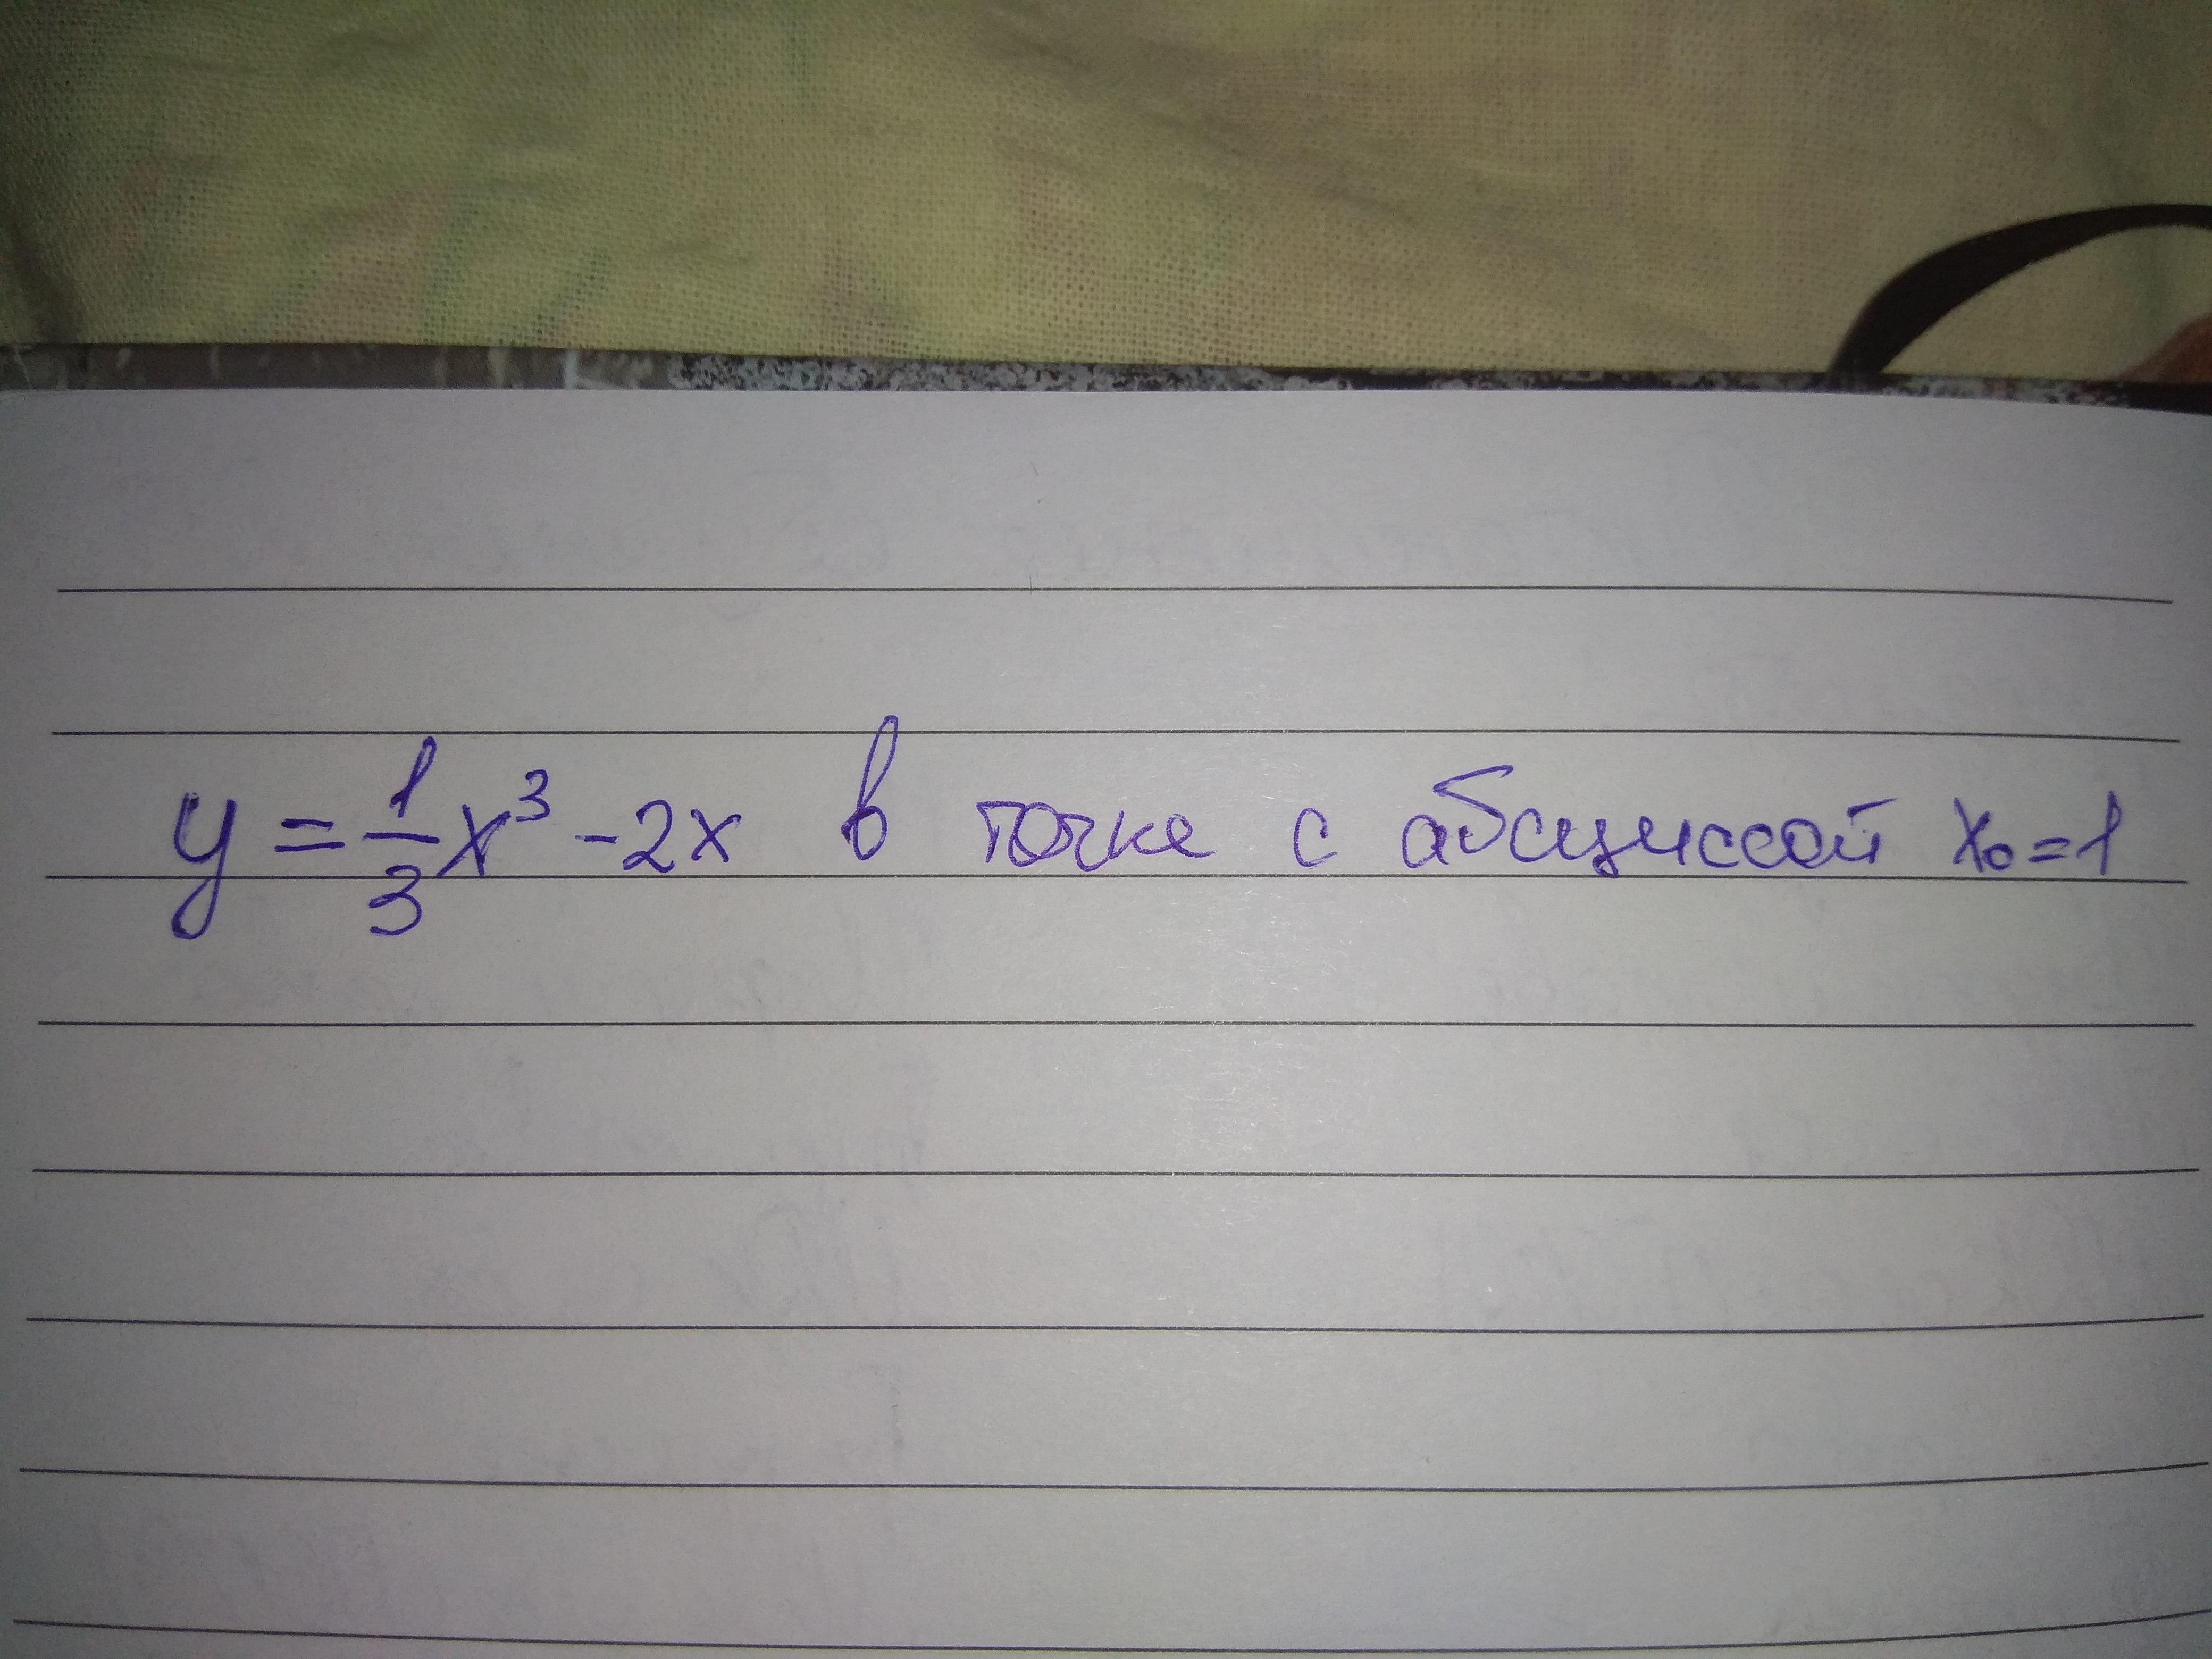 y = 1/3 x³ - 2x в точке с абсциссой x₀ = 1